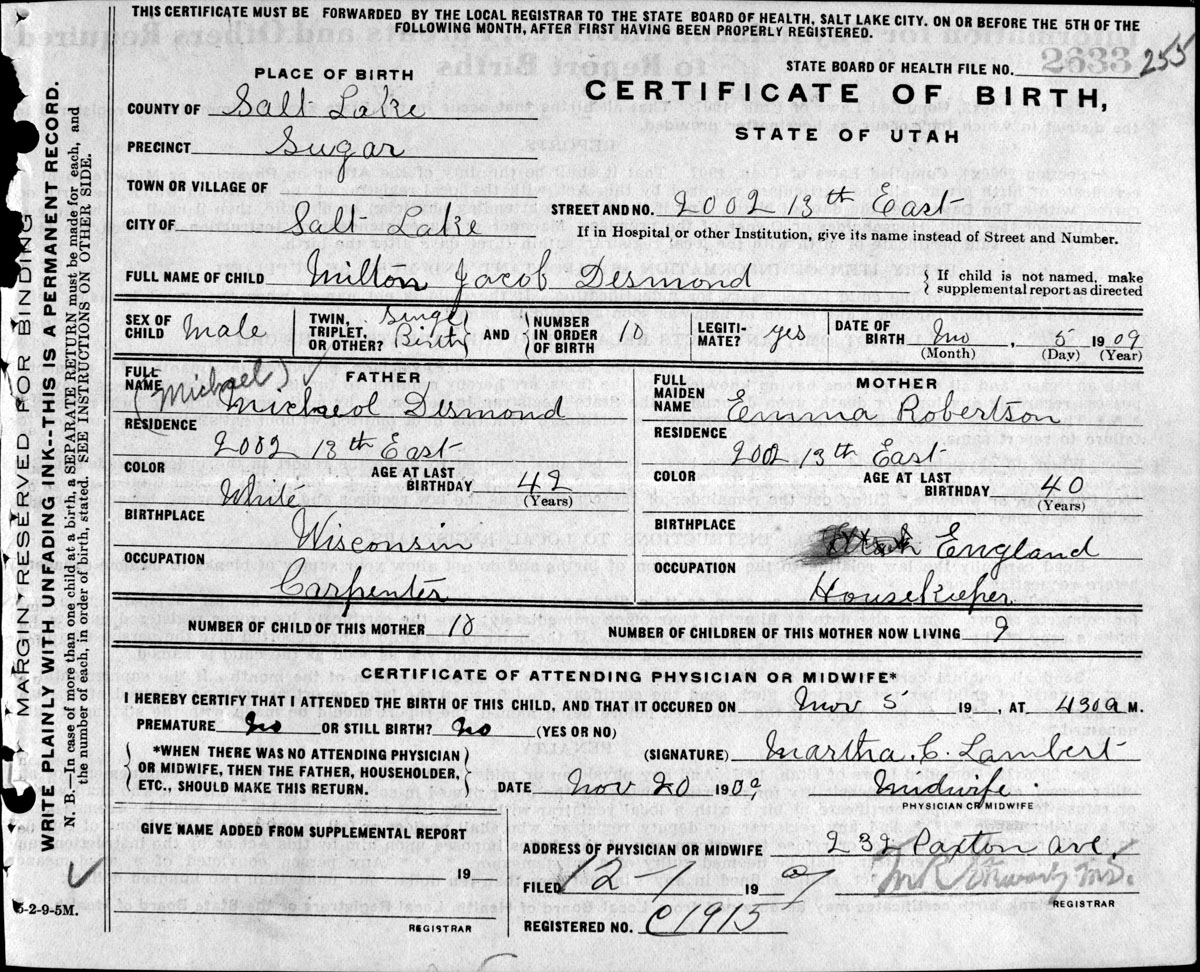 THIS CERTIFICATE MUST BE FORWARDED BY THE LOCAL REGISTRAR TO THE STATE BOARD OF HEALTH, SALT LAKE CITY. ON OR BEFORE THE 5TH OF THE
FOLLOWING MONTH, AFTER FIRST HAVING BEEN PROPERLY REGISTERED.
MARGIN RESERVED FOR BINDING
WRITE PLAINLY WITH UNFADING INK--THIS IS A PERMANENT RECORD.
N. B.—In case of more than one child at a birth, a SEPARATE RETURN must be made for each, and
the number of each, in order of birth, stated. SEE INSTRUCTIONS ON OTHER SIDE.
STATE BOARD OF HEALTH FILE NO. 2633 255
PLACE OF BIRTH
CERTIFICATE OF BIRTH,
STATE OF UTAH
COUNTY OF Salt Lake
PRECINCT Sugar
TOWN OR VILLAGE OF
CITY OF Salt Lake
STREET AND NO. 2002 13th East
If in Hospital or other Institution, give its name instead of Street and Number.
FULL NAME OF CHILD Milton Jacob Desmond
If child is not named, make
supplemental report as directed
SEX OF CHILD Male
TWIN, TRIPLET, OR OTHER? Single Birth
AND NUMBER IN ORDER OF BIRTH 10
LEGITIMATE? yes
DATE OF BIRTH Nov, 5 1909
(Month) (Day) (Year)
FATHER
FULL NAME (Michael) Micheol Desmond
RESIDENCE 2002 13th East
COLOR White
AGE AT LAST BIRTHDAY 49 (Years)
BIRTHPLACE Wisconsin
OCCUPATION Carpenter
MOTHER
FULL MAIDEN NAME Emma Robertson
RESIDENCE 2002 13th East
COLOR
AGE AT LAST BIRTHDAY 40 (Years)
BIRTHPLACE England
OCCUPATION Housekieper
NUMBER OF CHILD OF THIS MOTHER 10
NUMBER OF CHILDREN OF THIS MOTHER NOW LIVING 9
CERTIFICATE OF ATTENDING PHYSICIAN OR MIDWIFE*
I HEREBY CERTIFY THAT I ATTENDED THE BIRTH OF THIS CHILD, AND THAT IT OCCURED ON Nov 5 19, AT 430 a M.
PREMATURE No OR STILL BIRTH? No (YES OR NO)
*WHEN THERE WAS NO ATTENDING PHYSICIAN
OR MIDWIFE, THEN THE FATHER, HOUSEHOLDER,
ETC., SHOULD MAKE THIS RETURN.
(SIGNATURE) Martha C. Lambert
DATE Nov 20 1909
Midwife
PHYSICIAN OR MIDWIFE
GIVE NAME ADDED FROM SUPPLEMENTAL REPORT
19
REGISTRAR
5-2-9-5M.
ADDRESS OF PHYSICIAN OR MIDWIFE 232 Paxton Ave.
FILED 12-1 1909
REGISTRAR
REGISTERED NO. C1915